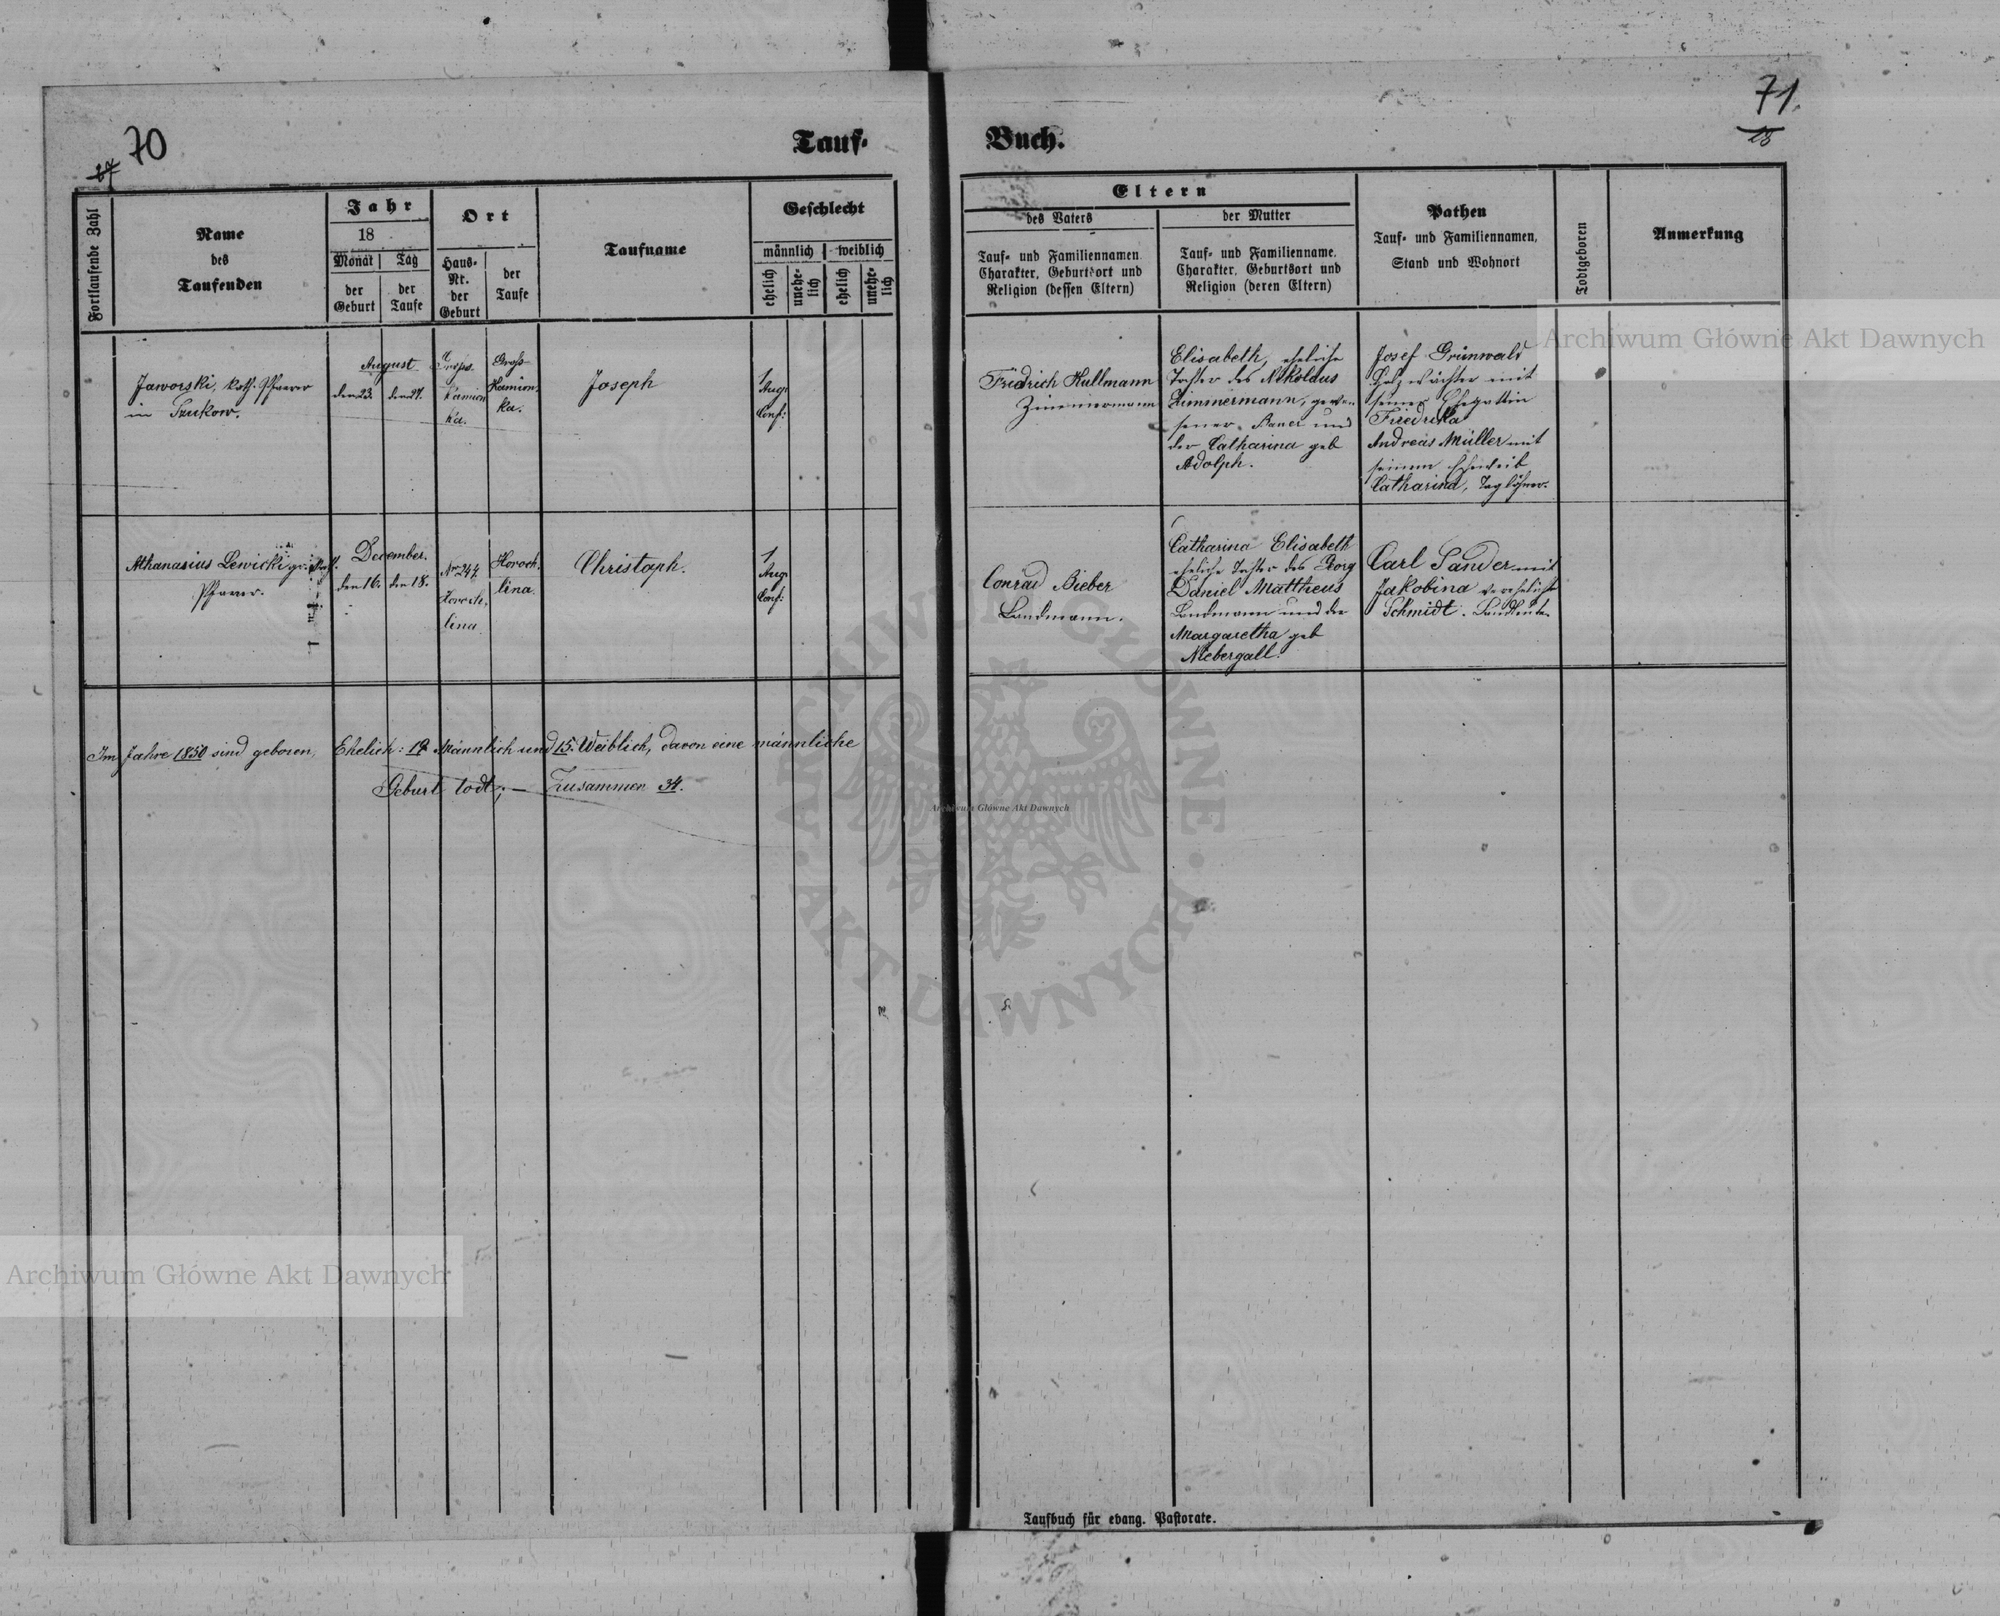 70
71.
27
28
Tauf-
Buch.
Fortlaufende Zahl
Name
des
Taufenden
Jahr
18
Monat
Tag
der
Geburt
der
Taufe
Ort
Haus-
Nr.
der
Geburt
der
Taufe
Taufname
Geschlecht
männlich
weiblich
ehelich
unehe-
lich
ehelich
unehe-
lich
Eltern
des Vaters
Tauf- und Familiennamen
Charakter, Geburtsort und
Religion (dessen Eltern)
der Mutter
Tauf- und Familienname,
Charakter, Geburtsort und
Religion (deren Eltern)
Pathen
Tauf- und Familiennamen,
Stand und Wohnort
Todtgeboren
Anmerkung
Jaworski, kath. Pfarrer
in
August
den 23.
den 27.
Gross
Kamion
ka.
Gross
Kamion,
ka.
Joseph
1
Aug:
Conf:
Friedrich Hullmann
Zimmermann
Elisabeth, eheliche
Tochter des Nikolaus
Zimmermann, gewe-
sener Bauer und
der Catharina geb
Adolph.
Josef Grünwald
mit
seiner Ehegattin
Friedrika
Andreas Müller mit
seinem Eheweib
Catharina, Taglöhner.
Athanasius Lewicki
Pfarrer.
December.
den 16.
den 18.
Nro 247
Horoch,
lina
Horoch,
lina.
Christoph.
1
Aug:
Conf:
Conrad Bieber
Landmann.
Catharina Elisabeth
eheliche Tochter des Georg
Daniel Mattheus
Landmann und der
Margaretha geb
Niebergall.
Carl Sander mit
Jakobina verehelichte
Schmidt. Landleute.
Im Jahre 1850 sind geboren, Ehelich: 19 Männlich und 15. Weiblich, davon eine männliche
Geburt todt; — Zusammen 34.
Taufbuch für evang. Pastorate.
Archiwum Główne Akt Dawnych
Archiwum Główne Akt Dawnych
Archiwum Główne Akt Dawnych
ARCHIWUM GŁÓWNE
AKT DAWNYCH